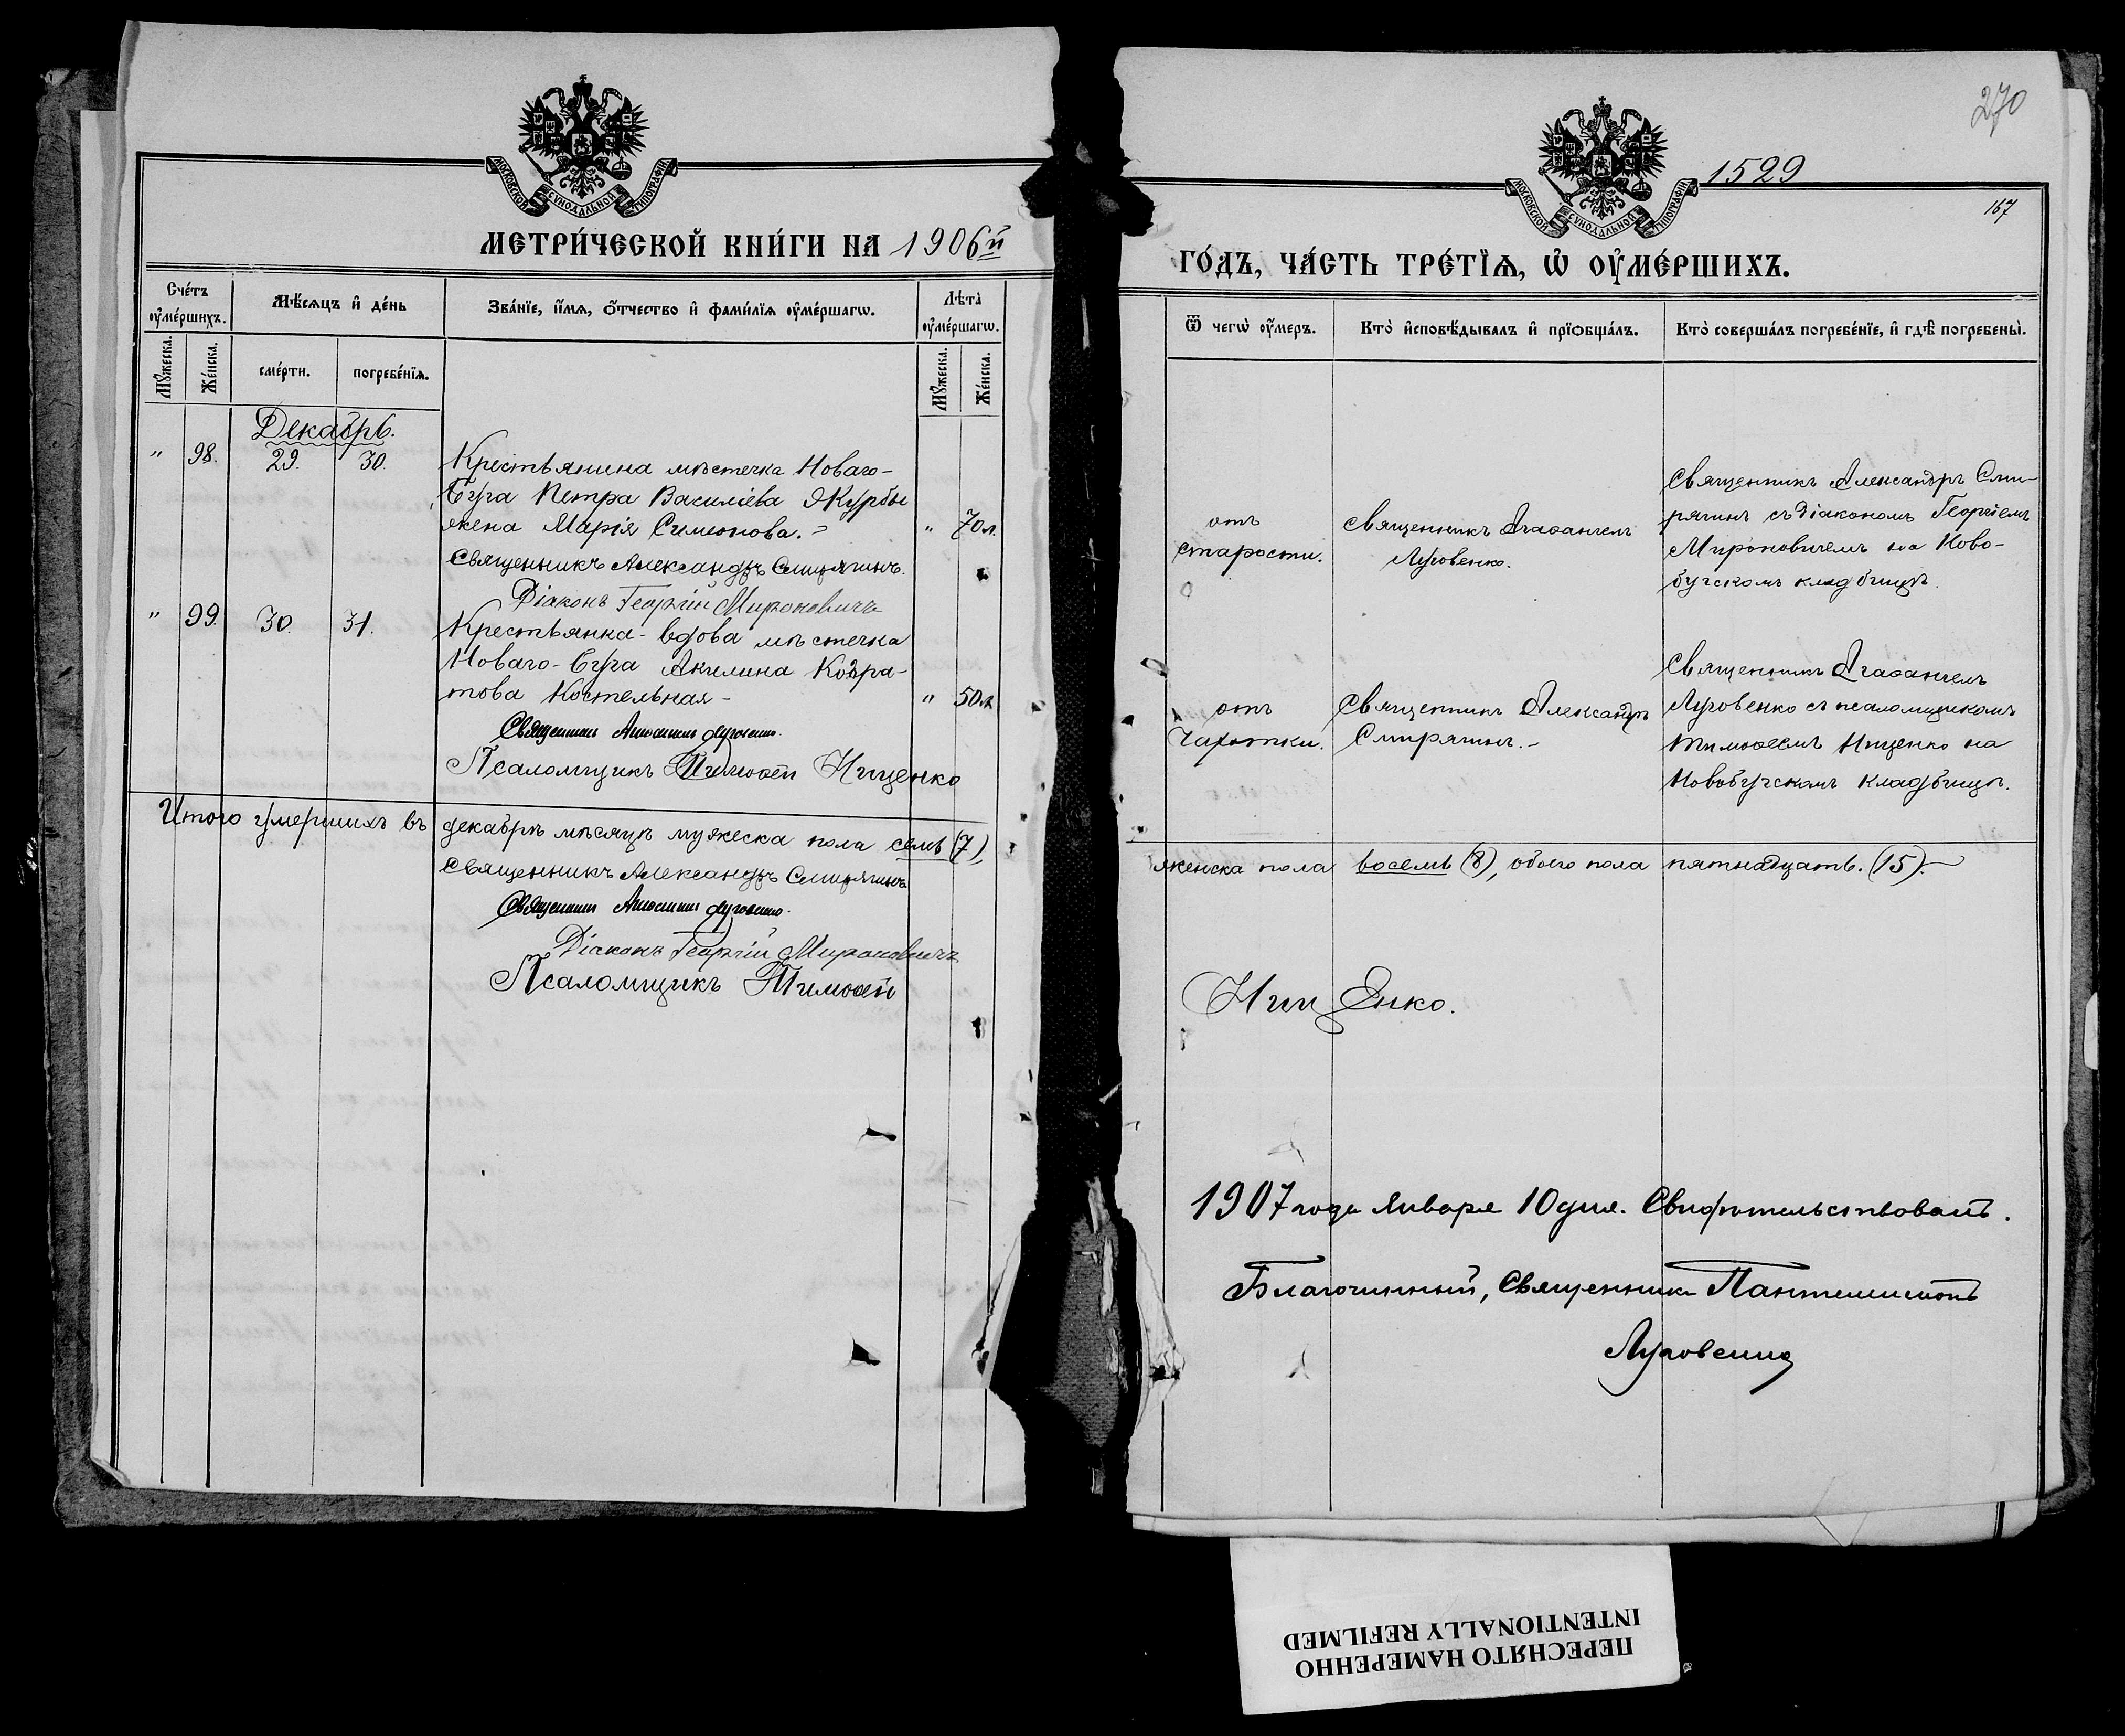 МОСКОВСКОЙ СѴНОДАЛЬНОЙ ТИПОГРАФІИ
МЕТРИ́ЧЕСКОЙ КНИ́ГИ НА 1906й
Сче́тъ ᲂу҆ме́ршихъ.
Мѣ́сяцъ и҆ де́нь
Зва́нїе, и҆́мѧ, ѻ҆́тчество и҆ фамѝлїѧ ᲂу҆ме́ршагѡ.
Лѣ́та ᲂу҆ме́ршагѡ.
Мꙋ́жеска.
Же́нска.
сме́рти.
погребе́нїѧ.
Мꙋ́жеска.
Же́нска.
Декабрь.
" 98. 29. 30.
Крестьянина мѣстечка Новаго-
Буга Петра Василіева Якурбы
жена Марія Симонова. " 70 л.
Священникъ Александръ Смирягинъ.
Діаконъ Георгій Мироновичъ
" 99. 30. 31.
Крестьянка-вдова мѣстечка
Новаго-Буга Акилина Кодра-
това Костельная - " 50 л.
Священникъ Агаѳангелъ Луговенко.
Псаломщикъ Тимоѳей Нищенко
Итого умершихъ въ декабрѣ мѣсяцѣ мужеска пола семь (7),
Священникъ Александръ Смирягинъ
Священникъ Агаѳангелъ Луговенко.
Діаконъ Георгій Мироновичъ
Псаломщикъ Тимоѳей
270
1529
167
МОСКОВСКОЙ СѴНОДАЛЬНОЙ ТИПОГРАФІИ
ГО́ДЪ, ЧА́СТЬ ТРЕ́ТЇѦ, Ѡ҆ ОУ҆МЕ́РШИХЪ.
Ѿ чегѡ̀ ᲂу҆́меръ.
Кто̀ и҆сповѣ́дывалъ и҆ прїѡбща́лъ.
Кто̀ соверша́лъ погребе́нїе, и҆ гдѣ̀ погребены̀.
отъ
старости.
Священникъ Агаѳангелъ
Луговенко.
Священникъ Александръ Сми-
рягинъ съ діакономъ Георгіемъ
Мироновичемъ на Ново-
бугскомъ кладбищѣ.
отъ
чахотки.
Священникъ Александръ
Смирягинъ. -
Священникъ Агаѳангелъ
Луговенко съ псаломщикомъ
Тимоѳеемъ Нищенко на
Новобугскомъ кладбищѣ.
женска пола восемь (8), обоего пола пятнадцать. (15).
Нищенко.
1907 года Января 10 дня. Свидѣтельствовалъ.
Благочинный, Священникъ Пантелеимонъ
Луговенко
ПЕРЕСНЯТО НАМЕРЕННО
INTENTIONALLY REFILMED